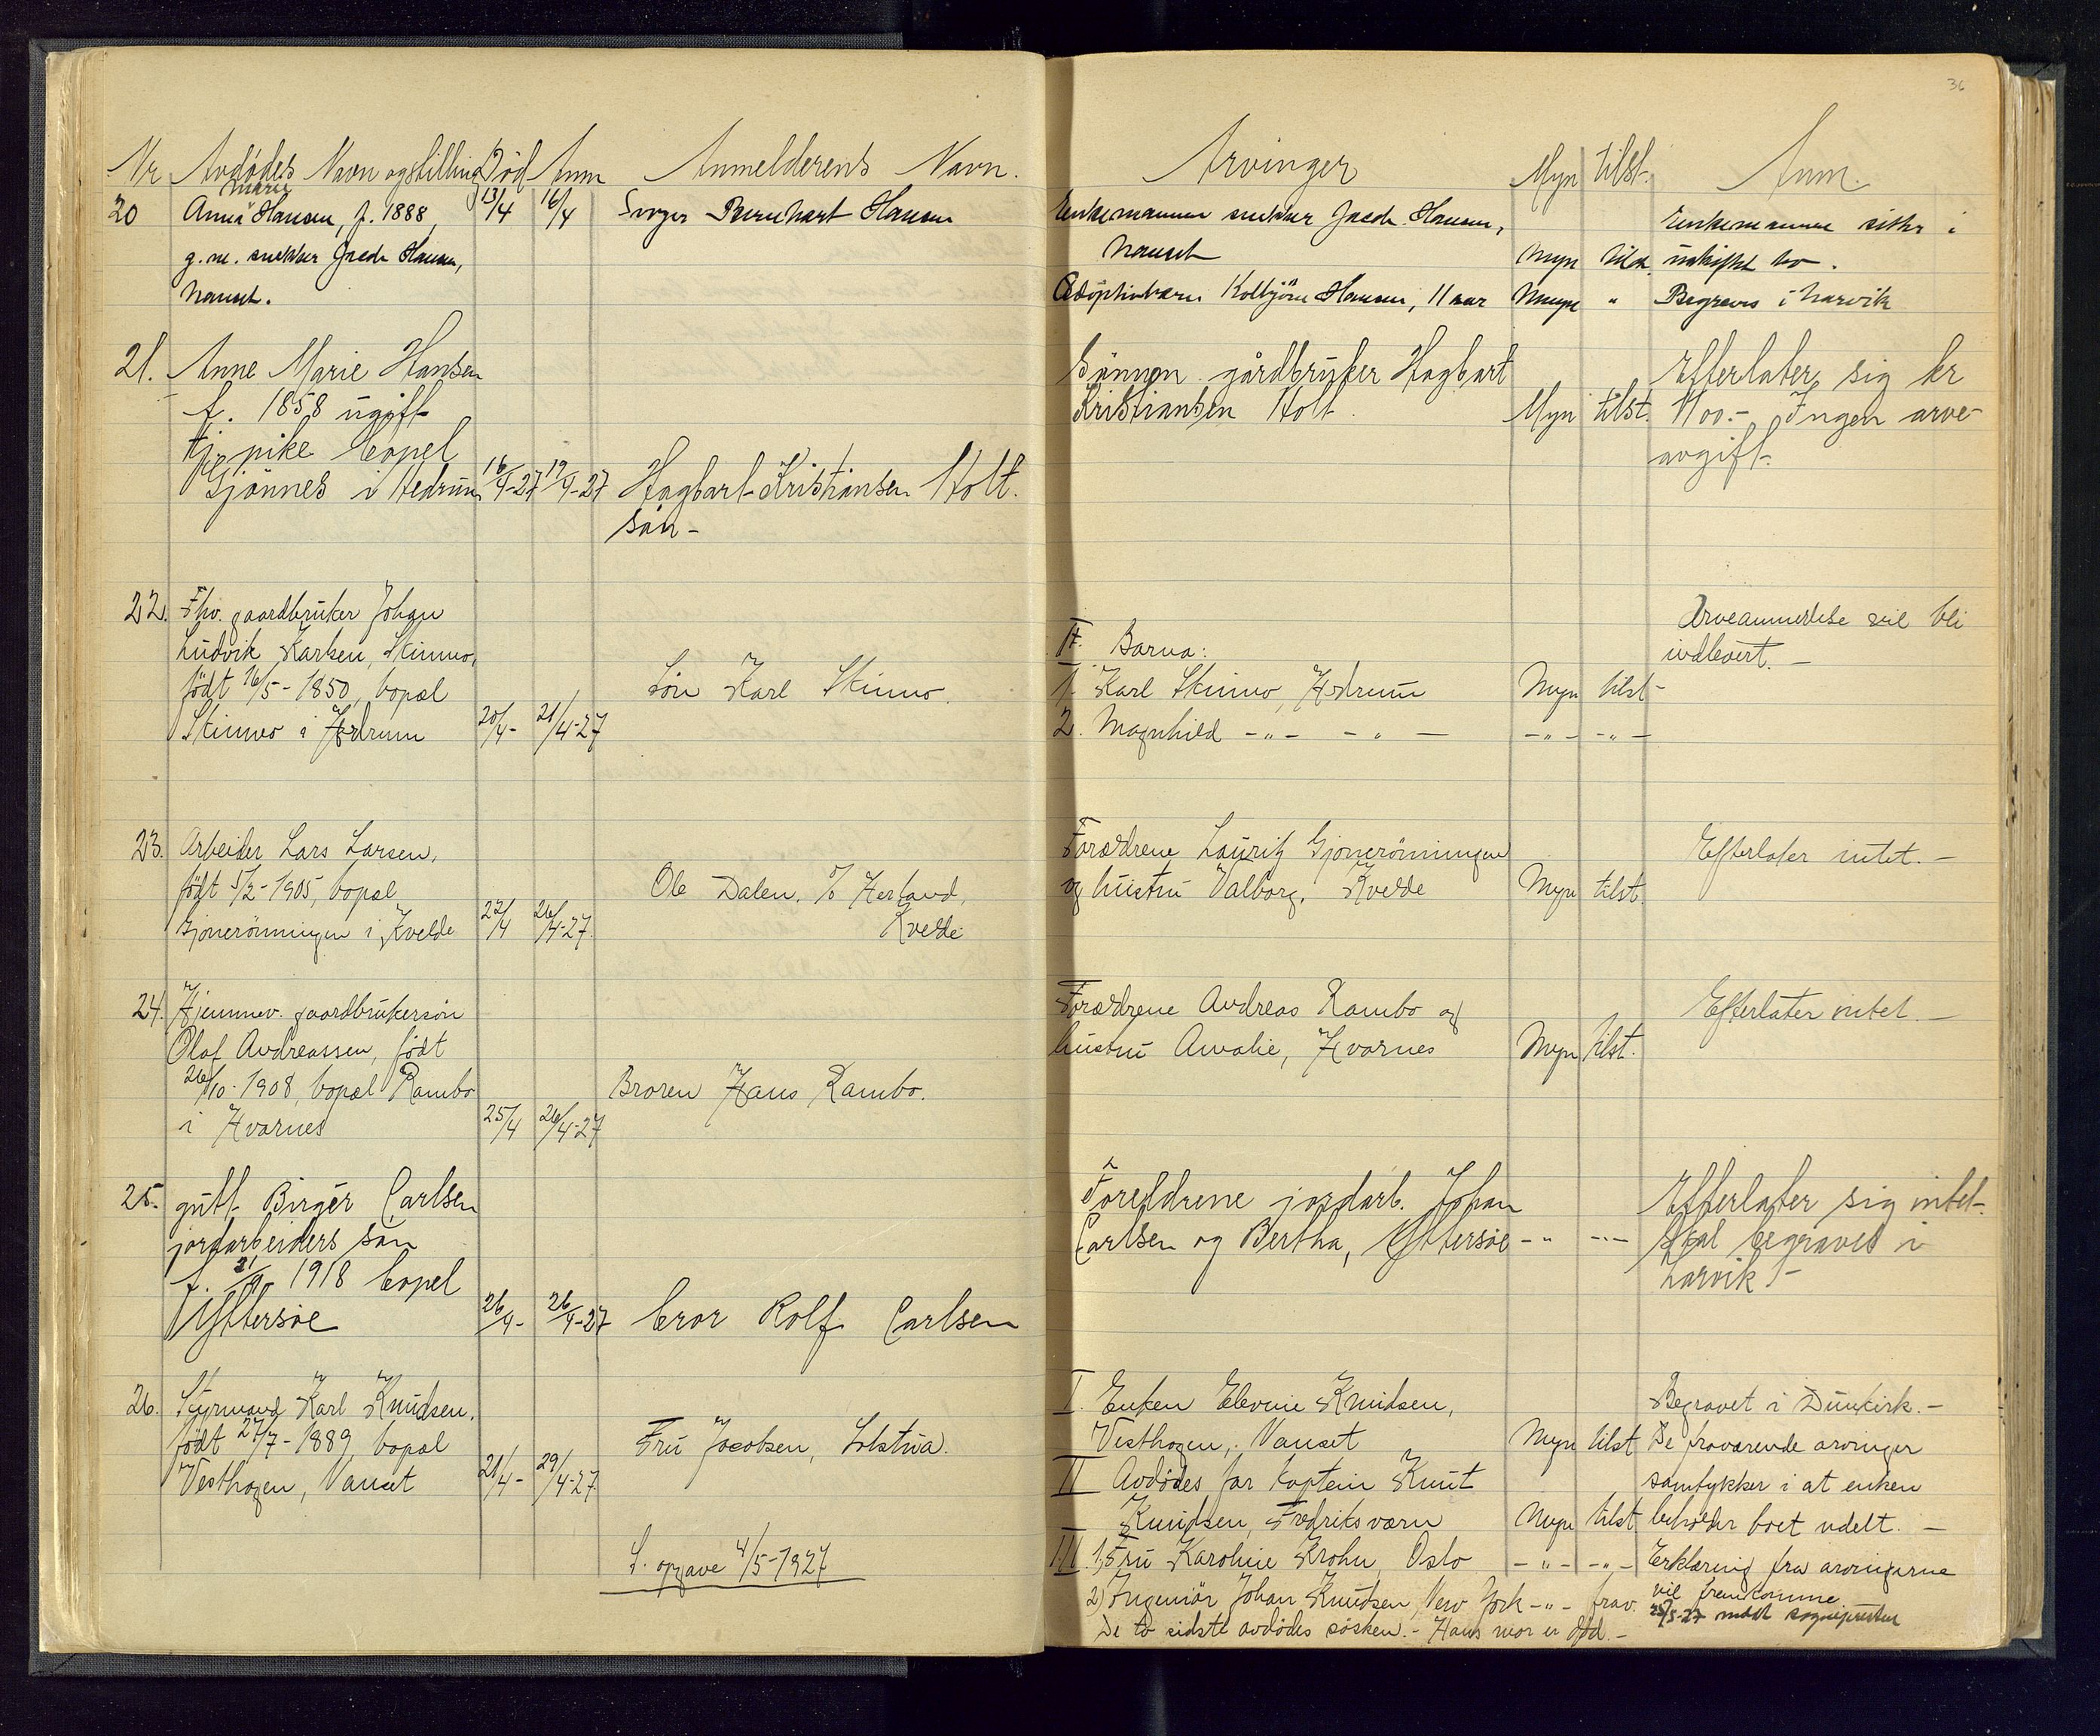 36
Nr Avdödes Navn og stilling Död Anm Anmelderens Navn.
Arvinger Myn tilst. Anm.
20 Anna Marie Hansen, f. 1888, 13/4 16/4 Svoger Bernhart Hansen
g.m. snekker Jacob Hansen,
Nanset.
Enkemannen snekker Jacob Hansen,
Nanset Myn tilst.
Adoptivbarn Kolbjörn Hansen, 11 aar Umyn "
Enkemannen sitter i
uskiftet bo.
Begraves i Larvik
21. Anne Marie Hansen
f. 1858 ugift
tj. pike bopel
Gjönnes i Hedrum 16/4-27 19/4-27 Hagbart Kristiansen Holt.
sön -
Sönnen gårdbruker Hagbart
Kristiansen Holt. Myn tilst.
Efterlater sig kr
1100.- Ingen arve-
avgift.
22. Fhv. gaardbruker Johan
Ludvik Karlsen, Skinmo,
födt 16/5-1850, bopæl
Skinmo i Hedrum 20/4- 21/4-27
Sön Karl Skinmo.
II. Barna:
1. Karl Skinmo, Hedrum Myn tilst-
2. Magnhild -"- -"- -"- -"-
Arveanmeldelse vil bli
indlevert. -
23. Arbeider Lars Larsen,
födt 5/2-1905, bopæl
Gjonerönningen i Kvelde 22/4 26/4-27.
Ole Dalen, Herland,
Kvelde
Forældrene Lauritz Gjonerönningen
og hustru Valborg, Kvelde Myn tilst.
Efterlater intet. -
24. Hjemmev. gaardbrukersön
Olaf Andreassen, födt
26/10-1908, bopæl Rambo
i Hvarnes 25/4 26/4-27
Broren Hans Rambo.
Forældrene Andreas Rambo og
hustru Amalie, Hvarnes Myn tilst.
Efterlater intet. -
25. gutt Birger Carlsen
jordarbeiders sön
f. 1918 bopel
Yttersöe 26/4- 26/4-27 bror Rolf Carlsen
Foreldrene jordarb. Johan
Carlsen og Bertha, Yttersöe -"- -"-
Efterlater sig intet.
Skal begraves i
Larvik -
26. Styrmand Karl Knudsen,
födt 27/7-1889, bopæl
Vesthagen, Nanset 21/4- 29/4-27
Fru Jacobsen, Lolstua.
S. opgave 4/5-1927
I. Enken Elevine Knudsen,
Vesthagen, Nanset Myn tilst
II Avdödes far kaptein Knut
Knudsen, Fredriksværn Myn tilst
III 1, Fru Karoline Krohn, Oslo -"- -"-
2) Ingeniör Johan Knudsen, New York -"- frav.
De to sidste avdödes sösken. - Hans mor er död. -
Begravet i Dunkirk. -
De fraværende arvinger
samtykker i at enken
beholder boet udelt. -
Erklæring fra arvingerne
vil fremkomme.
25/5-27 meldt sognepresten